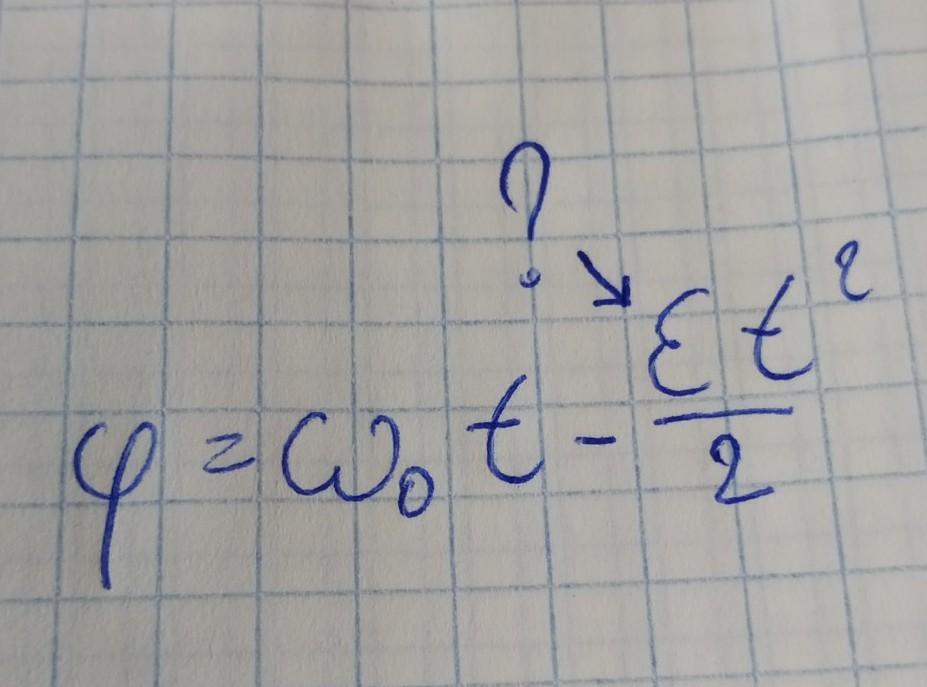 ?
↘
φ = ω₀ t - εt² / 2